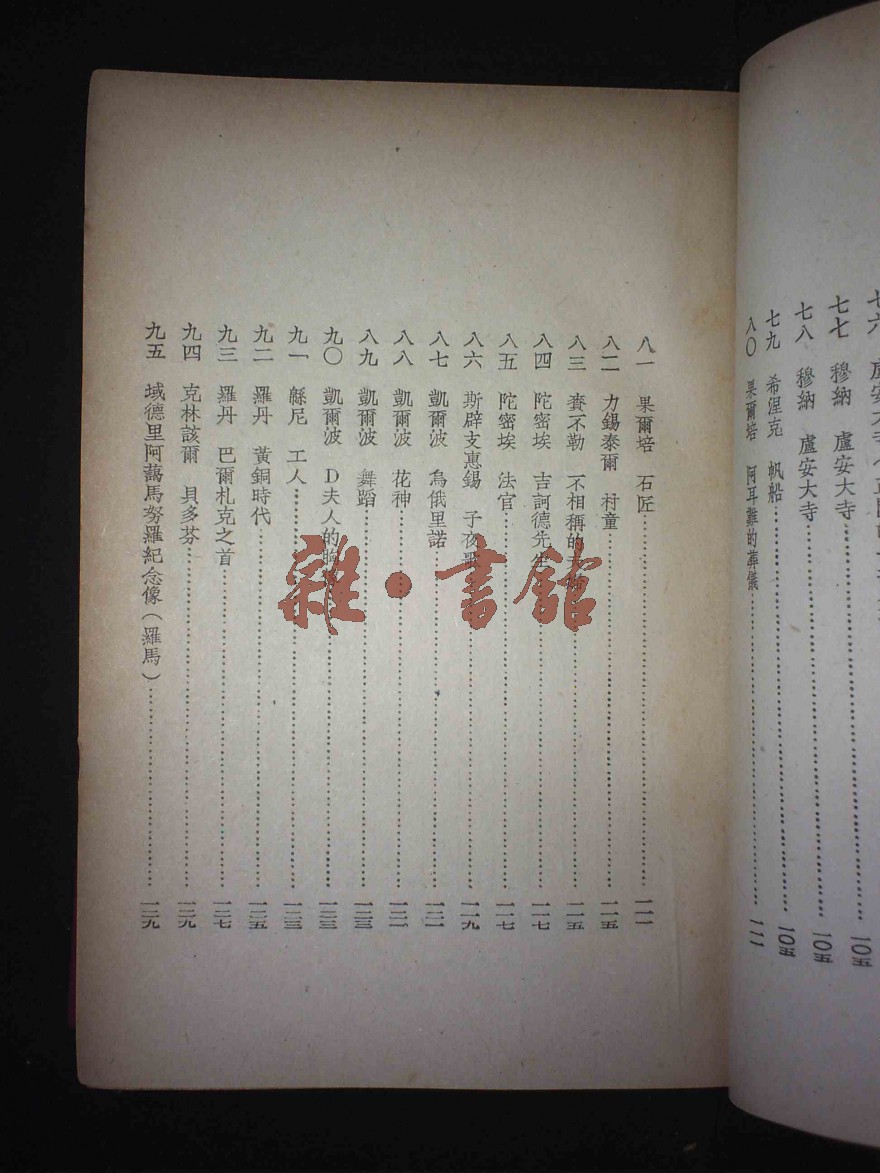 七八 穆納 盧安大寺……一〇五
七九 希涅克 帆船……一〇五
八〇 果爾培 阿耳難的葬儀……一一一
八一 果爾培 石匠……一一一
八二 力錫泰爾 村童……一一五
八三 賚不勒 不相稱的……一一五
八四 陀密埃 吉訶德先生……一一七
八五 陀密埃 法官……一一七
八六 斯辟支惠錫 子夜歌……一一九
八七 凱爾波 烏俄里諾……一二一
八八 凱爾波 花神……一二一
八九 凱爾波 舞蹈……一二三
九〇 凱爾波 D夫人的胸……一二三
九一 緜尼 工人……一二三
九二 羅丹 黃銅時代……一二五
九三 羅丹 巴爾札克之首……一二七
九四 克林該爾 貝多芬……一二九
九五 域德里阿藹馬努羅紀念像（羅馬）……一二九
雜·書館